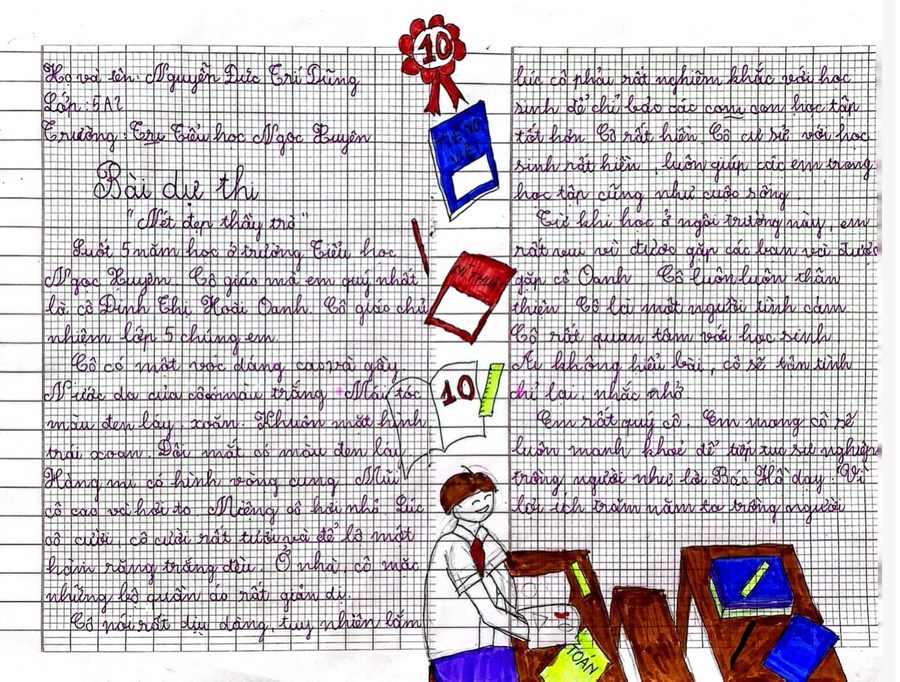 Họ và tên: Nguyễn Đức Trí Dũng
Lớp: 5A2
Trường: Trư Tiểu học Ngọc Xuyên
Bài dự thi
"Nét đẹp thầy trò"
Suốt 5 năm học ở trường Tiểu học
Ngọc Xuyên. Cô giáo mà em quý nhất
là cô Đinh Thị Hoài Oanh. Cô giáo chủ
nhiệm lớp 5 chúng em.
Cô có một vóc dáng cao và gầy
Nước da của cô có màu trắng. Mái tóc
màu đen láy, xoăn. Khuôn mặt hình
trái xoan. Đôi mắt có màu đen láy
Hàng mi có hình vòng cung. Mũi
cô cao và hơi to. Miệng cô hơi nhỏ. Lúc
cô cười, cô cười rất tươi và để lộ một
hàm răng trắng đều. Ở nhà, cô mặc
những bộ quần áo rất giản dị.
Cô nói rất dịu dàng, tuy nhiên lắm
lúc cô phải rất nghiêm khắc với học
sinh để chỉ bảo các con con học tập
tốt hơn. Cô rất hiền. Cô cư sử với học
sinh rất hiền, luôn giúp các em trong
học tập cũng như cuộc sống.
Từ khi học ở ngôi trường này, em
rất vui vì được gặp các bạn và được
gặp cô Oanh. Cô luôn luôn thân
thiện. Cô là một người tình cảm
Cô rất quan tâm với học sinh
Ai không hiểu bài, cô sẽ tận tình
chỉ lại, nhắc nhở.
Em rất quý cô. Em mong cô sẽ
luôn mạnh khoẻ để tiếp tục sự nghiệp
trồng người như lời Bác Hồ dạy: Vì
lợi ích trăm năm ta trồng người
10
TIẾNG
VIỆT
10
TOÁN